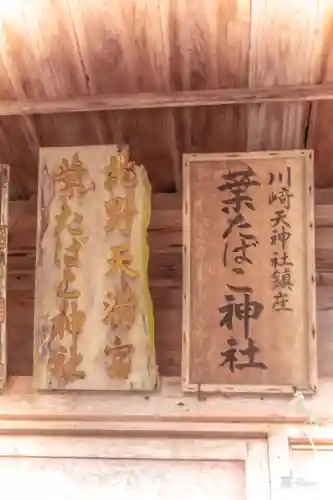 川崎天神社鎮座
葉たばこ神社
北野天満宮
葉たばこ神社